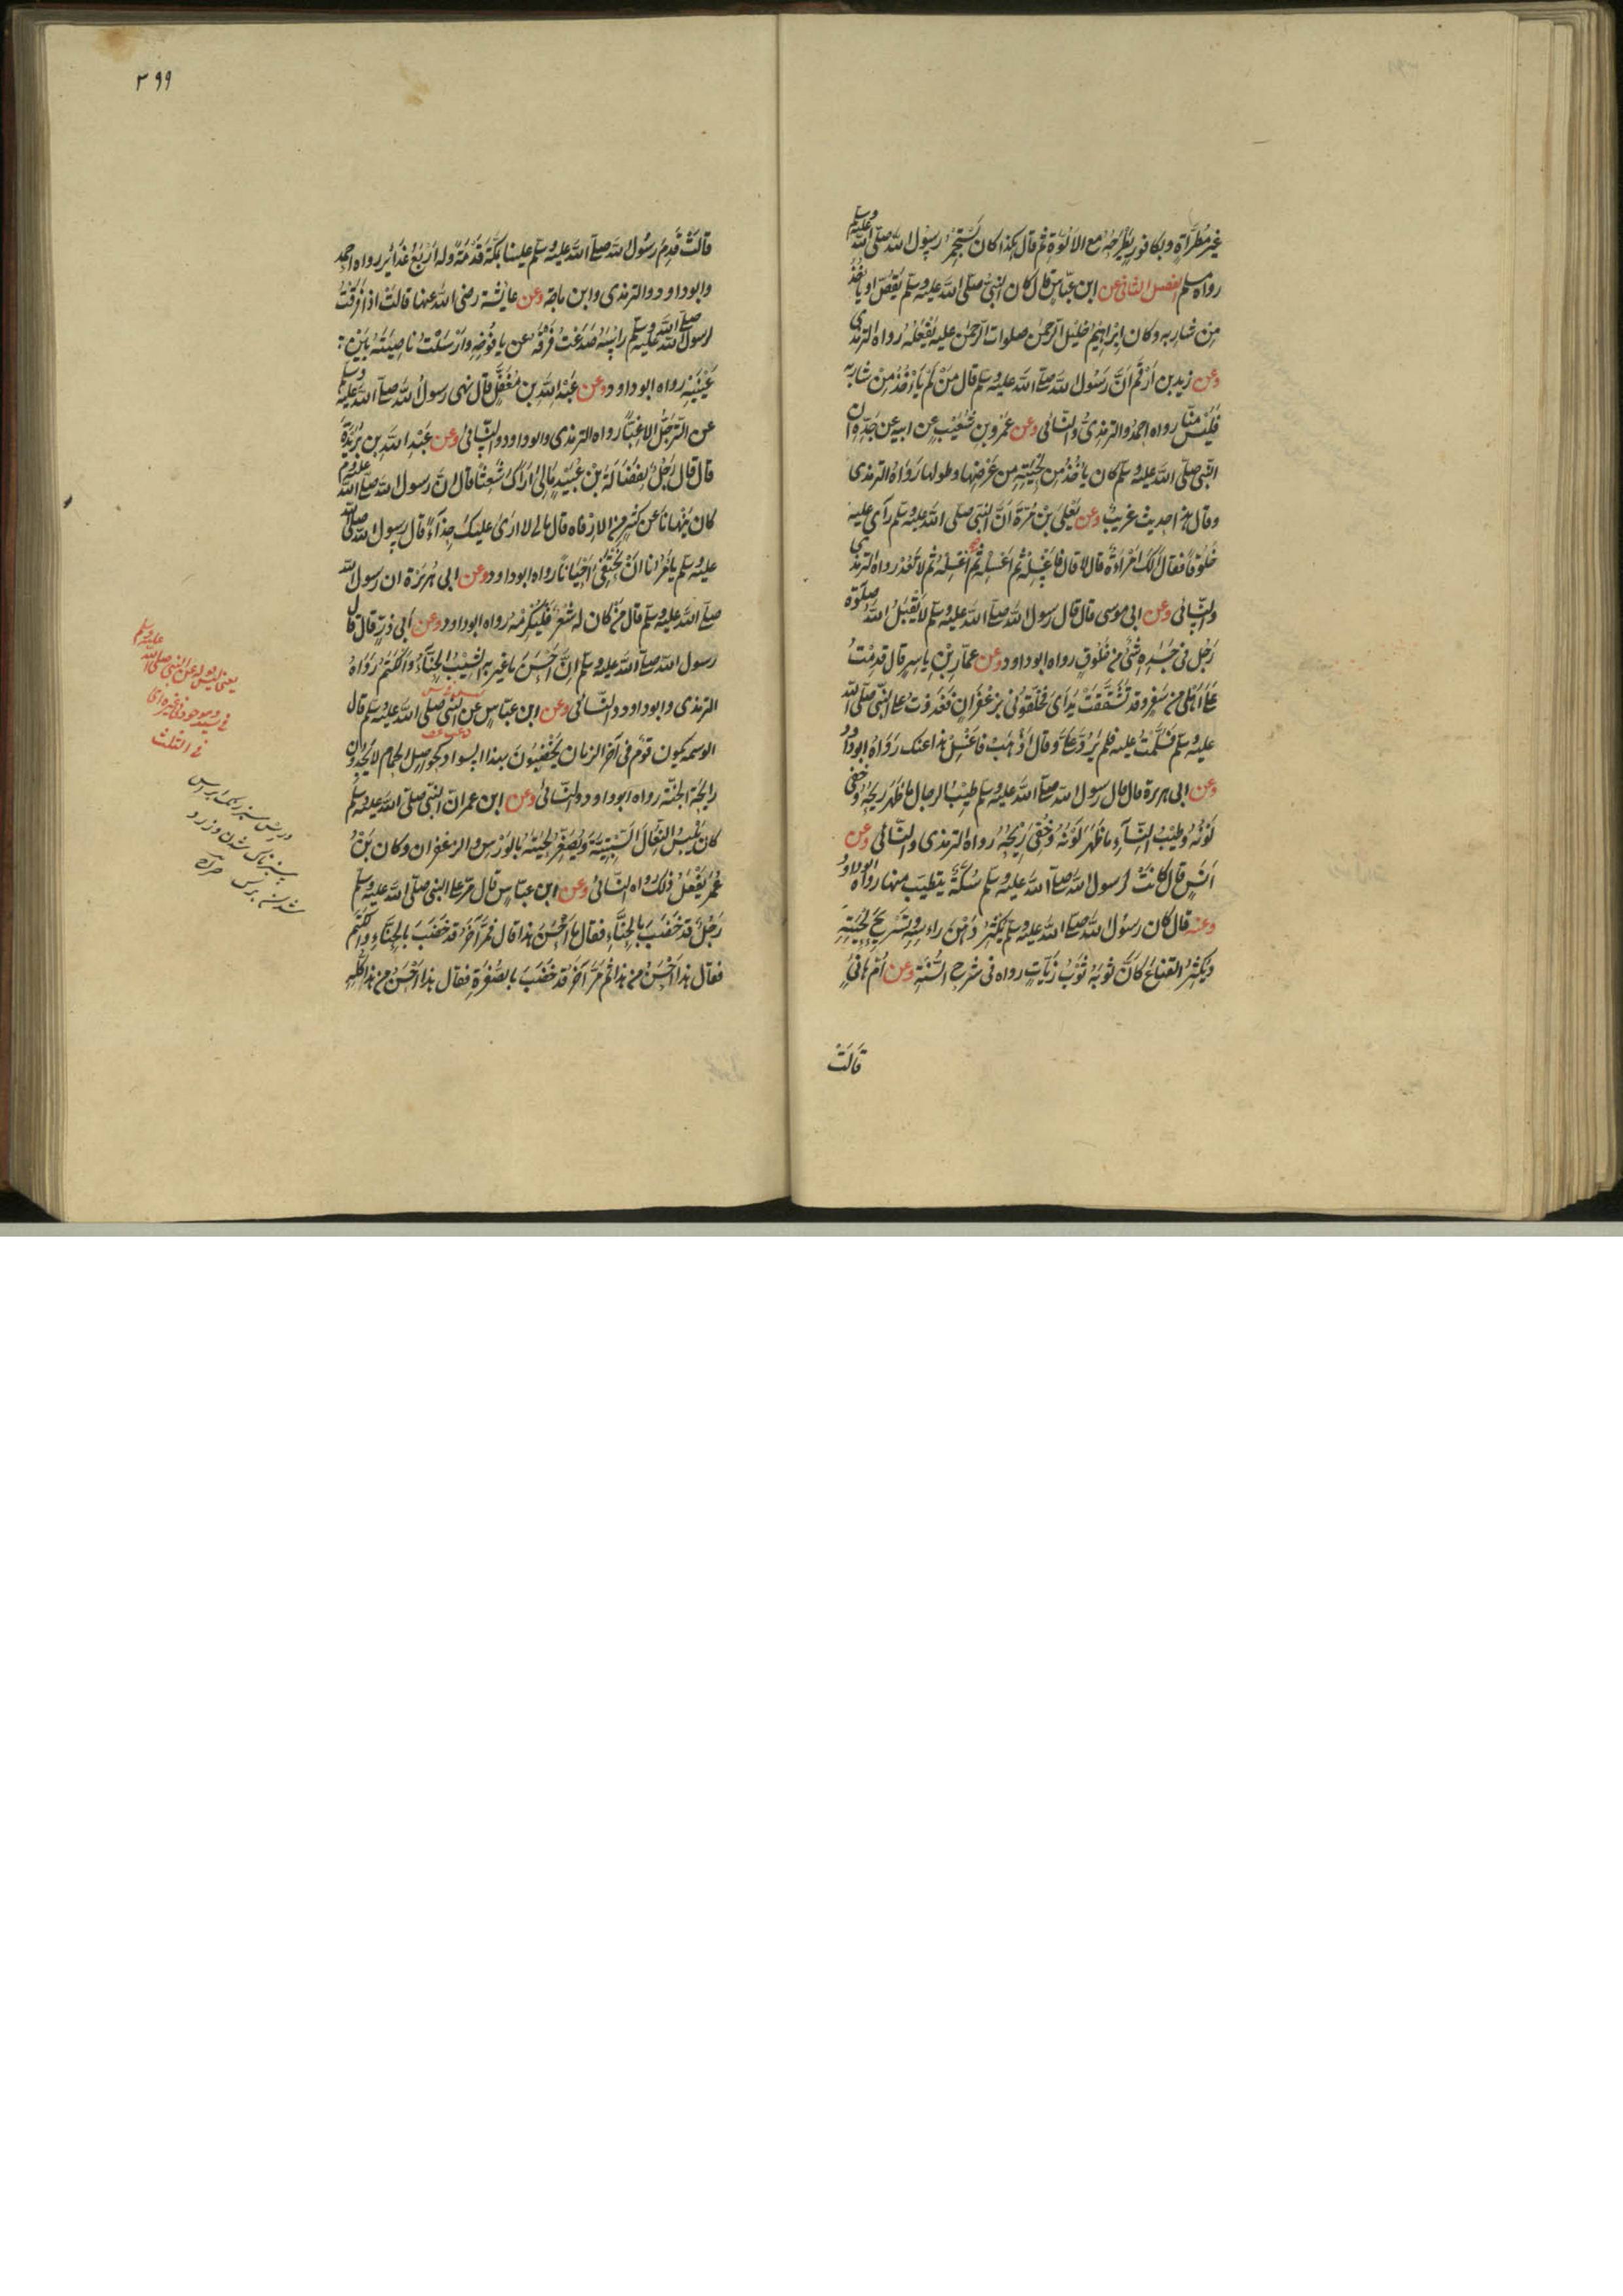 غير مُطَرّاةٍ وبكافور يَطْرحُهُ مع الالُوّةِ ثم قال هكذا كان يَسْتَجْمِرُ رسولُ الله صلى الله عليه وسلم
رواه مسلم الفصل الثانى عن ابن عبّاسٍ قال كان النبىُّ صلى الله عليه وسلم يَقُصُّ او يأخُذُ
مِنْ شاربه وكان ابْراهِيمُ خليل الرّحمن صلوات الرّحمن عليه يَفْعَلُهُ رواه الترمذى
وعن زيد بن اَرْقم اَنَّ رَسُولَ الله صلى الله عليه وسلم قال مَنْ لَم يَأْخُذْ مِنْ شارِبِه
فَلَيْسَ مِنّا رواه احمدُ والترمذىُّ والنسائى وعن عَمْرِو بن شُعَيْبٍ عن ابيه عن جَدِّه انّ
النّبى صلى الله عليه وسلم كان يأخُذُ مِن لِحْيَتِه مِن عَرْضِها وطولها رَوَاهُ الترمذى
وقال هذا حديث غريبٌ وعن يَعْلى بْن مُرَّةَ اَنَّ النّبىَّ صلى الله عليه وسلم رَآى عليه
خَلُوقًا فقال اَلَكَ امْرَاَةٌ قال لا قال فاغْسِلْهُ ثم اغْسِلْه ثُم اغْسِلْهُ ثم لا تَعُدْ رواه الترمذى
والنسائى وعن ابى موسى قال قال رسول الله صلى الله عليه وسلم لا يَقْبَلُ الله صلوٰةَ
رَجُل فى جَسَدِه شَىْءٌ من خَلُوقٍ رواه ابو داود وعن عمّارِ بْنِ ياسِرٍ قال قَدِمْتُ
على اَهْلى من سَفَرٍ وقد تَشَقَّقَتْ يَداىَ فَخَلَّقُونى بِزَعْفَرانٍ فَغَدَوْتُ على النّبى صلى الله
عليه وسلم فَسَلَّمْتُ عليه فلم يَرُدَّ عَلَىَّ وقال اذْهَبْ فاغْسِلْ هذا عنك رَوَاهُ ابو داود
وعن ابى هريرة قال قال رسول الله صلى الله عليه وسلم طِيْبُ الرجال ما ظَهَرَ رِيحُهُ وخَفِىَ
لَوْنُهُ وطِيْبُ النِّسَآءِ ما ظَهَرَ لَوْنُهُ وخَفِىَ رِيْحُهُ رواه الترمذى والنسائى وعن
اَنَسٍ قال كانتْ لرسول الله صلى الله عليه وسلم سُكَّةٌ يتطيّب منها رواه ابو داود
وعنه قال كان رسولُ الله صلى الله عليه وسلم يُكْثِرُ دَهْنَ راسِه وتَسْرِيحَ لِحْيَتِه
ويُكْثِرُ القِناعَ كَاَنَّ ثوبَهُ ثَوْبُ زَيّاتٍ رواه فى شرح السُّنّة وعن اُمّ هانِىءٍ
قالَتْ
٣٩٩
قالَتْ قَدِمَ رَسُولُ الله صلى الله عليه وسلم علينا بمَكّةَ قَدْمَةً وله اَرْبَعُ غَدَائِرَ رواه احمد
وابو داود والترمذى وابن ماجة وعن عايشة رضى الله عنها قالَتْ اذا فَرَقْتُ
لرسول الله صلى الله عليه وسلم راسَهُ صَدَعْتُ فَرْقَهُ عن يافُوخِه وارْسَلْتُ ناصِيَتَهُ بَيْن
عَيْنَيْهِ رواه ابو داود وعن عَبْدِ الله بن مُغَفَّلٍ قال نهى رسولُ الله صلى الله عليه وسلم
عن التّرَجُّلِ الا غِبًّا رواه الترمذى وابو داود والنّسائى وعن عَبْد الله بن بُرَيْدَةَ
قال قال رَجُلٌ لِفَضَالَةَ بْن عُبَيْدٍ مالى اَرَاكَ شَعِثًا قال انَّ رسول الله صلى الله عليه وسلم
كان يَنْهانا عن كثيرٍ من الاِرْفاه قال مالى لا ارَى عليك حِذَآءً قال رسول الله صلى الله
عليه وسلم يامُرُنا انْ نَحْتَفِىَ اَحْيَانًا رواه ابو داود وعن ابى هُرَيْرَةَ ان رسول الله
صلى الله عليه وسلم قال من كان له شَعْرٌ فَلْيُكْرِمْهُ رواه ابو داود وعن اَبى ذَرٍّ قال قال
رسول الله صلى الله عليه وسلم اِنَّ اَحْسَنَ ما غُيِّرَ به الشَّيْبُ الحِنّآءُ والكَتَمُ رَوَاهُ
الترمذى وابو داود والنّسائى وعن ابن عبّاسٍ عن النّبى صلى الله عليه وسلم قال
الوسمه يكون قَوْمٌ فى آخر الزمان يَخْضِبُونَ بهذا السواد كحَواصِلِ الحمام لا يَجِدُونَ
رايِحَةَ الجنّة رواه ابو داود والنّسائىُّ وعن ابن عمر انّ النّبىَّ صلى الله عليه وسلم
كان يَلْبَسُ النِّعَالَ السِّبْتِيَّةَ ويُصَفِّرُ لِحْيَتَهُ بالوَرْسِ والزعفران وكان ابْنُ
عُمَرَ يَفْعَلُ ذلك رواه النّسائى وعن ابن عبّاسٍ قال مَرَّ على النبى صلى الله عليه وسلم
رَجُلٌ قد خَضَبَ بالحِنّاءِ فقال ما اَحْسَنَ هذا قال فمَرَّ آخَرُ قد خَضَبَ بالحِنّاءِ والكَتَمِ
فقال هذا اَحْسَنُ من هذا ثم مَرَّ آخَرُ قد خَضَبَ بالصُّفْرَةِ فقال هذا اَحْسَنُ من هذا كُلِّه
عليه وسلم
يعنى ليس بقول عن النبى صلى الله
فى الثلث